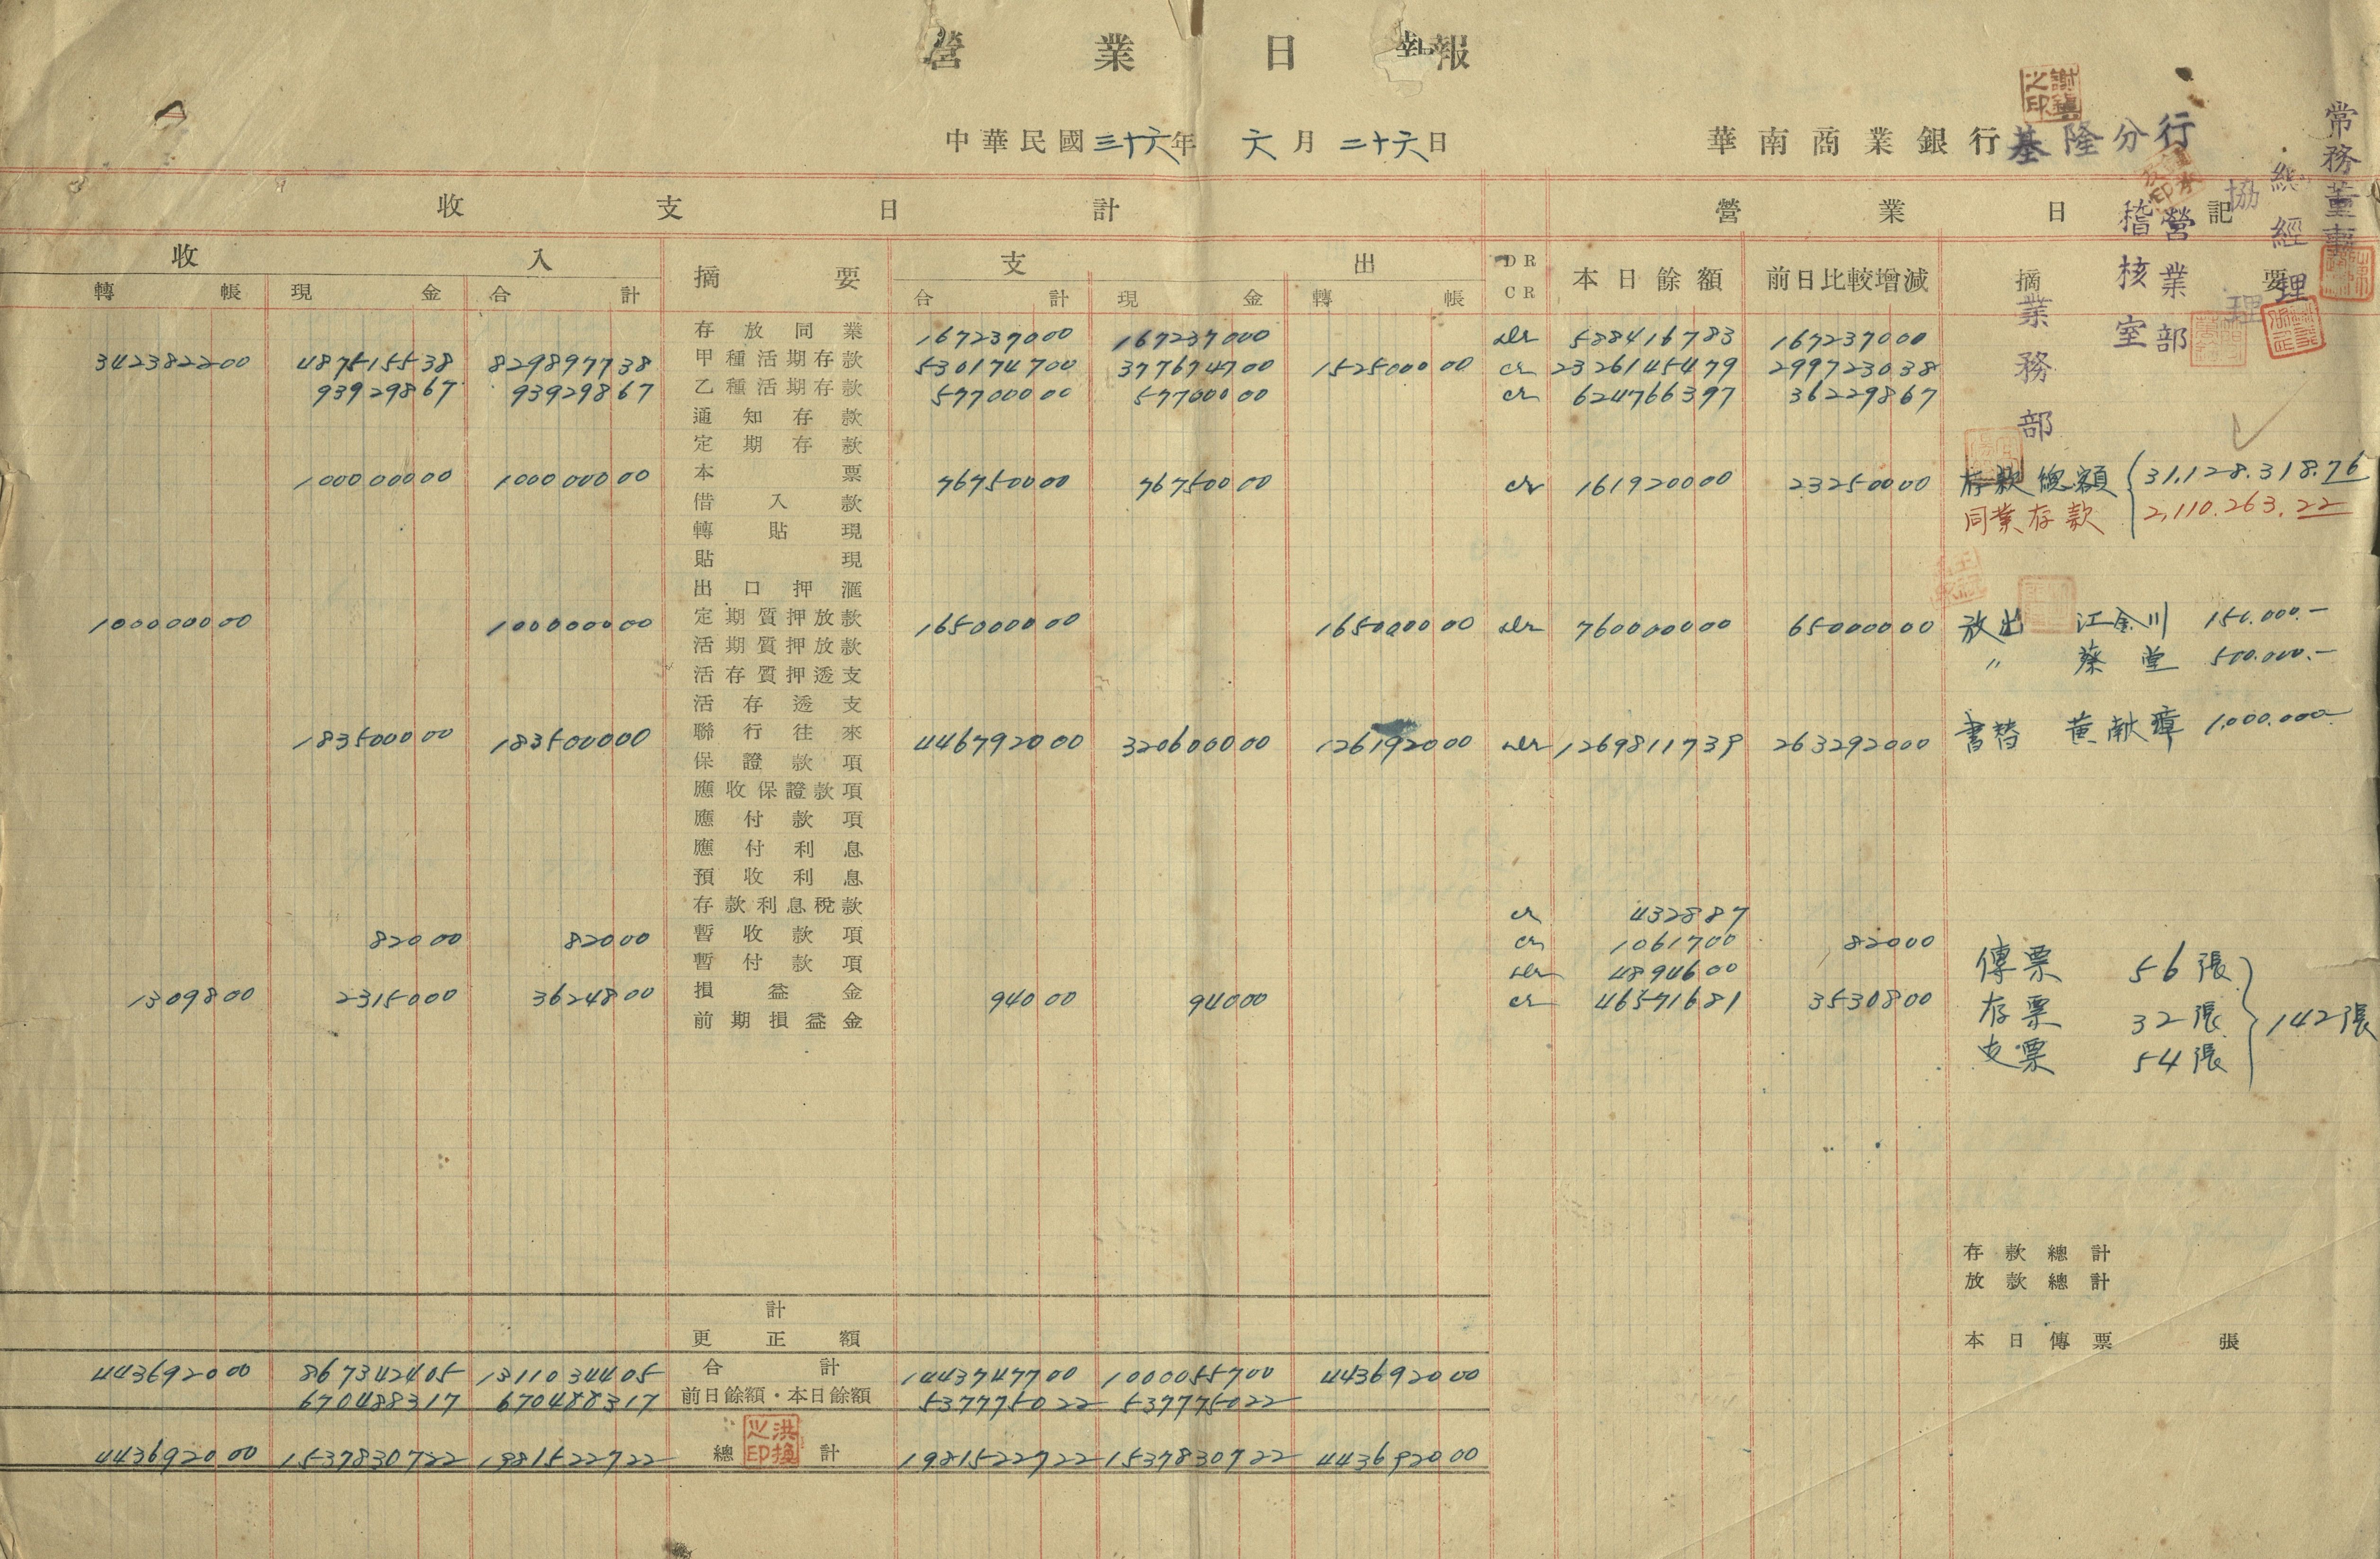 營業日報
中華民國三十六年 六月二十六日 華南商業銀行基隆分行
常務董事
總經理
協理
稽核室
營業部
業務部
收支日計 營業日記
收入 摘要 支出 DR CR 本日餘額 前日比較增減 摘要
轉帳 現金 合計 合計 現金 轉帳
存放同業 167237000 167237000 dr 588416783 167237000
342382200 487515538 829897738 甲種活期存款 530174700 377674700 152500000 cr 2326145479 299723038
93929867 93929867 乙種活期存款 57700000 57700000 cr 624766397 36229867
通知存款
定期存款
100000000 100000000 本票 76750000 76750000 cr 161920000 23250000 存款總額 31.128.318.76
借入款 同業存款 2,110.263.22
轉貼現
貼現
出口押滙
100000000 100000000 定期質押放款 165000000 165000000 dr 760000000 65000000 放出 江金川 150.000.-
活期質押放款 〃 蔡堂 500.000.-
活存質押透支
活存透支
183500000 183500000 聯行往來 446792000 320600000 126192000 dr 1269811739 263292000 書替 黃献璋 1.000.000
保證款項
應收保證款項
應付款項
應付利息
預收利息
存款利息稅款 cr 432887
82000 82000 暫收款項 cr 1061700 82000
暫付款項 dr 4894600
1309800 2315000 3624800 損益金 94000 94000 cr 46571681 3530800
前期損益金
傳票 56張
存票 32張 142張
支票 54張
存款總計
放款總計
計
更正額 本日傳票 張
443692000 867342405 1311034405 合計 1443747700 1000055700 443692000
670488317 670488317 前日餘額・本日餘額 537775022 537775022
443692000 1537830722 1981522722 總計 1981522722 1537830722 443692000